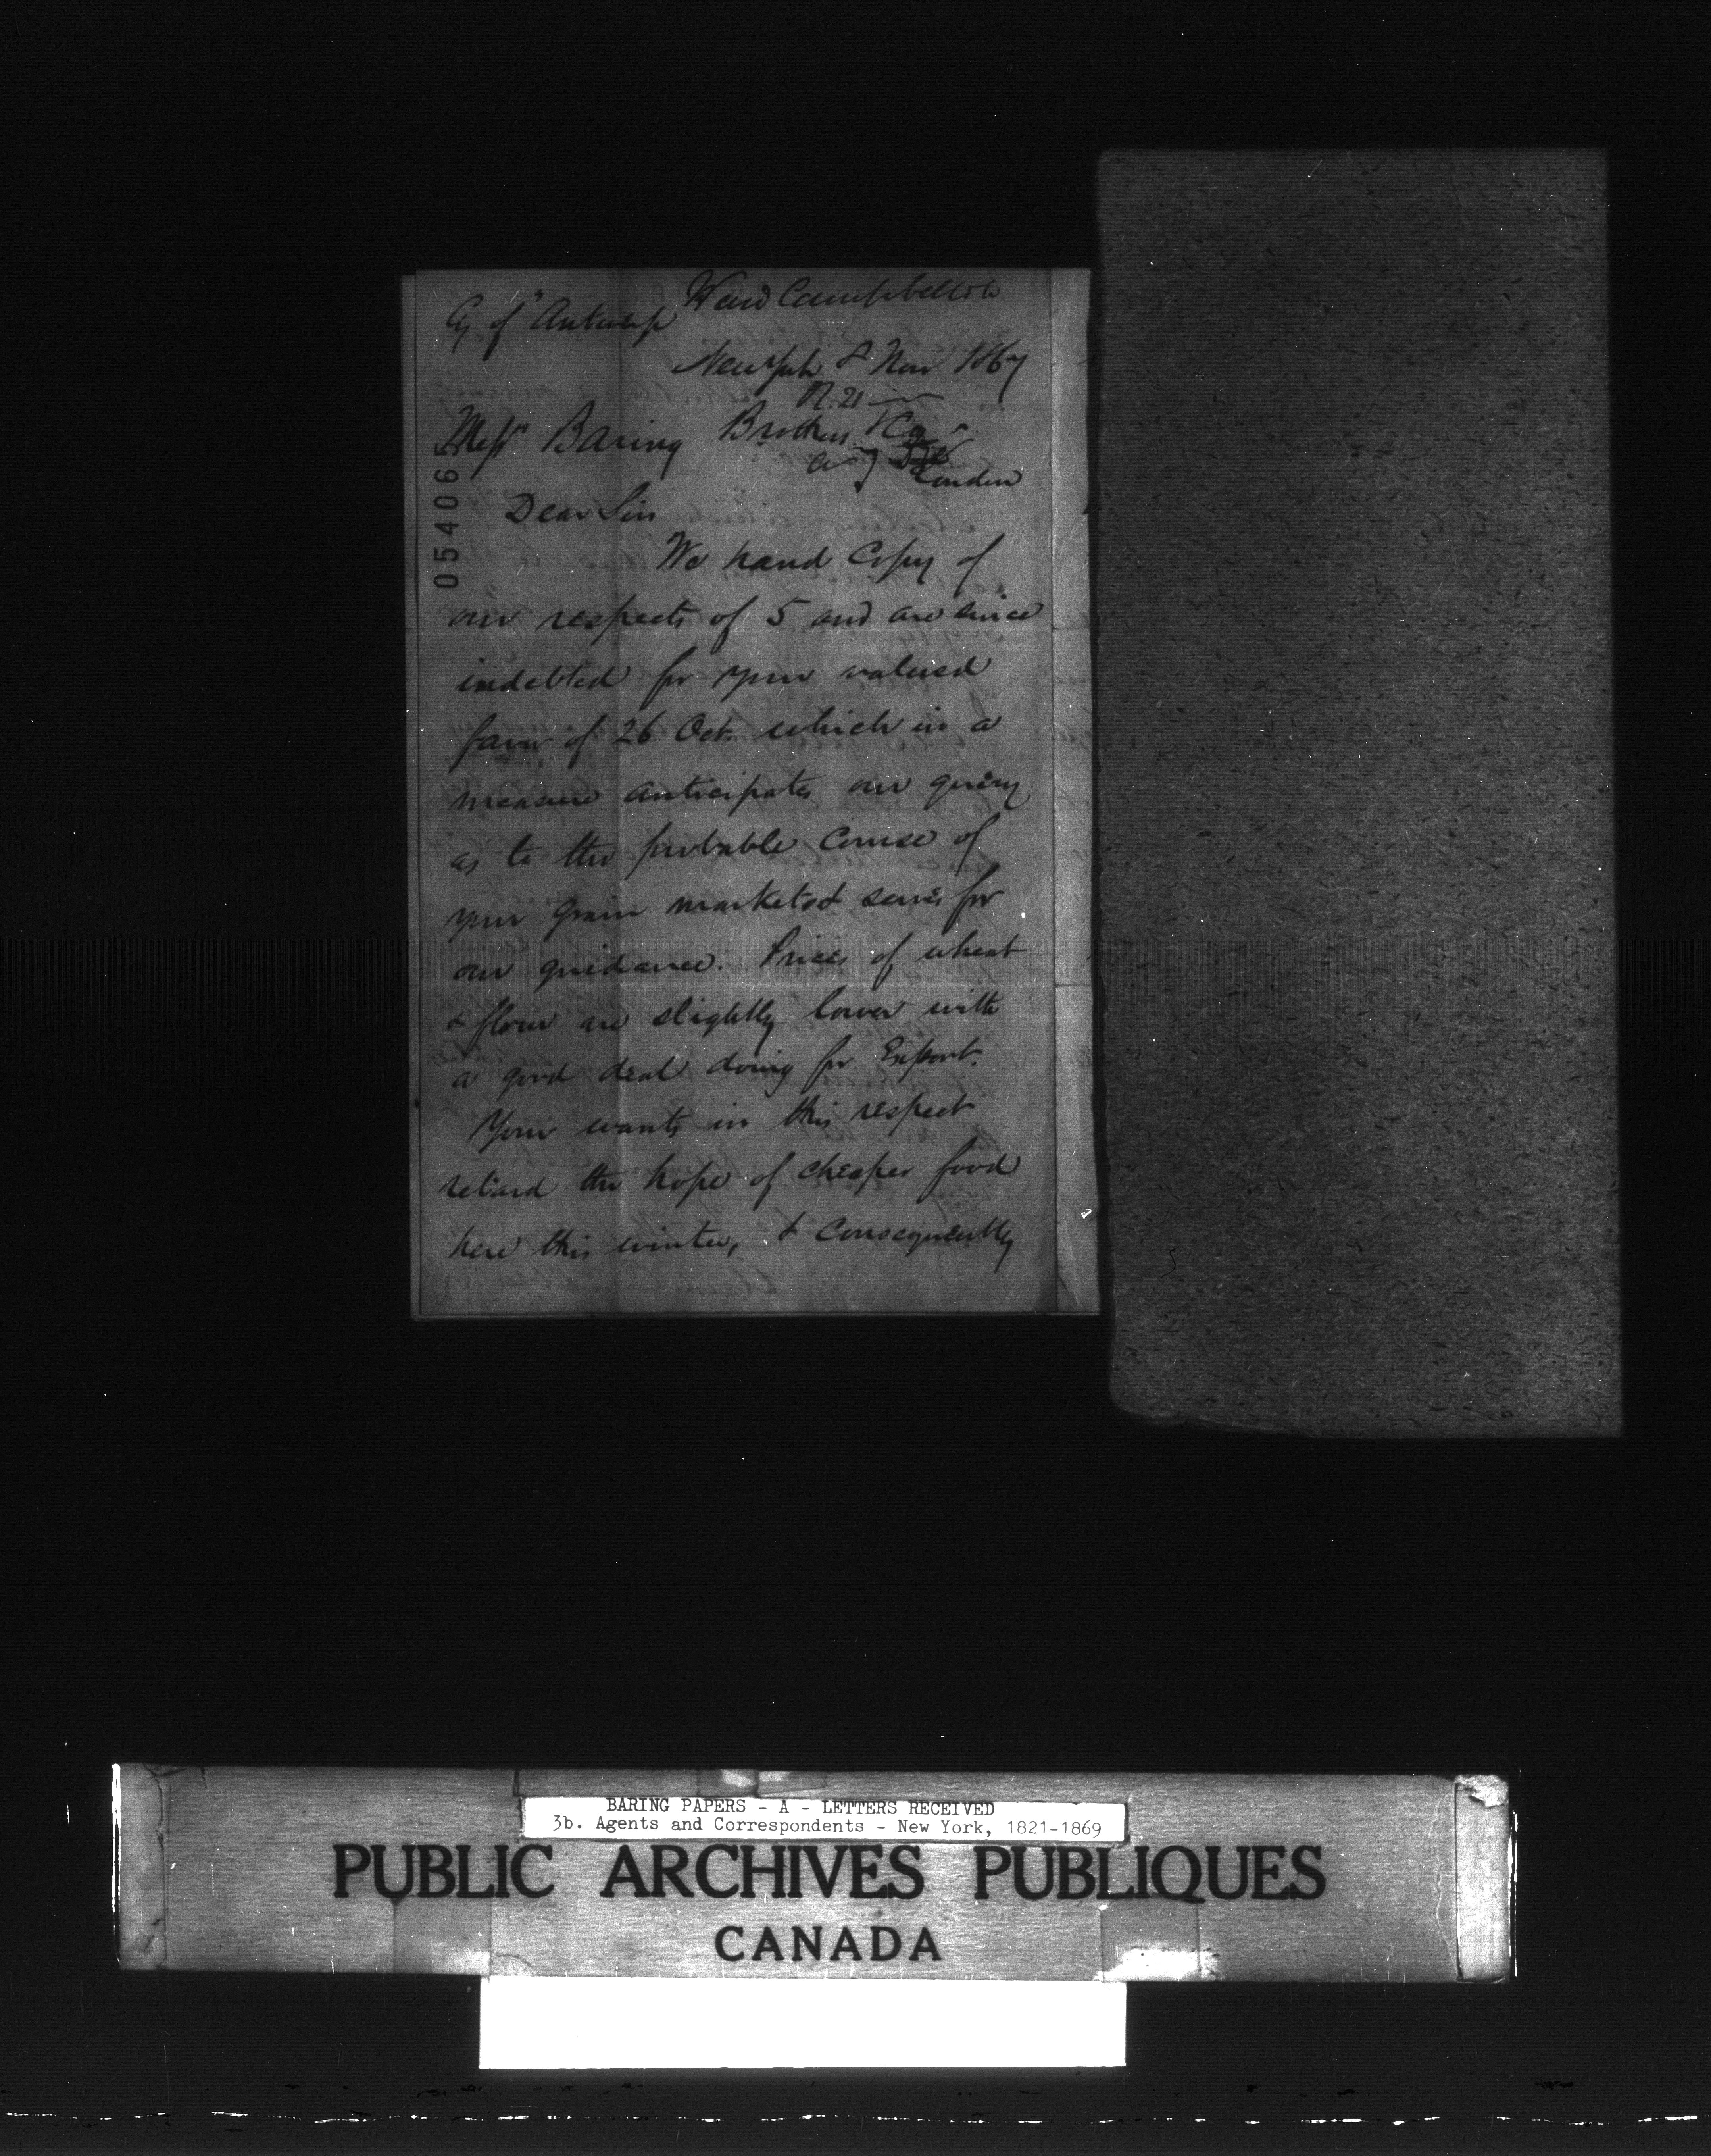 Ward Campbell & Co
Cy of "Antwerp
New York 8 Nov 1867
R. 21
Messrs Baring Brothers & Co
London
054065
Dear Sirs
We hand Copy of
our respects of 5 and are since
indebted for your valued
favor of 26 Oct. which in a
measure anticipates our query
as to the probable course of
your Grain markets & serves for
our guidance. Prices of wheat
& flour are slightly lower with
a good deal doing for Export.
Your wants in this respect
retard the hope of cheaper food
here this winter, & consequently
BARING PAPERS - A - LETTERS RECEIVED
3b. Agents and Correspondents - New York, 1821-1869
PUBLIC ARCHIVES PUBLIQUES
CANADA